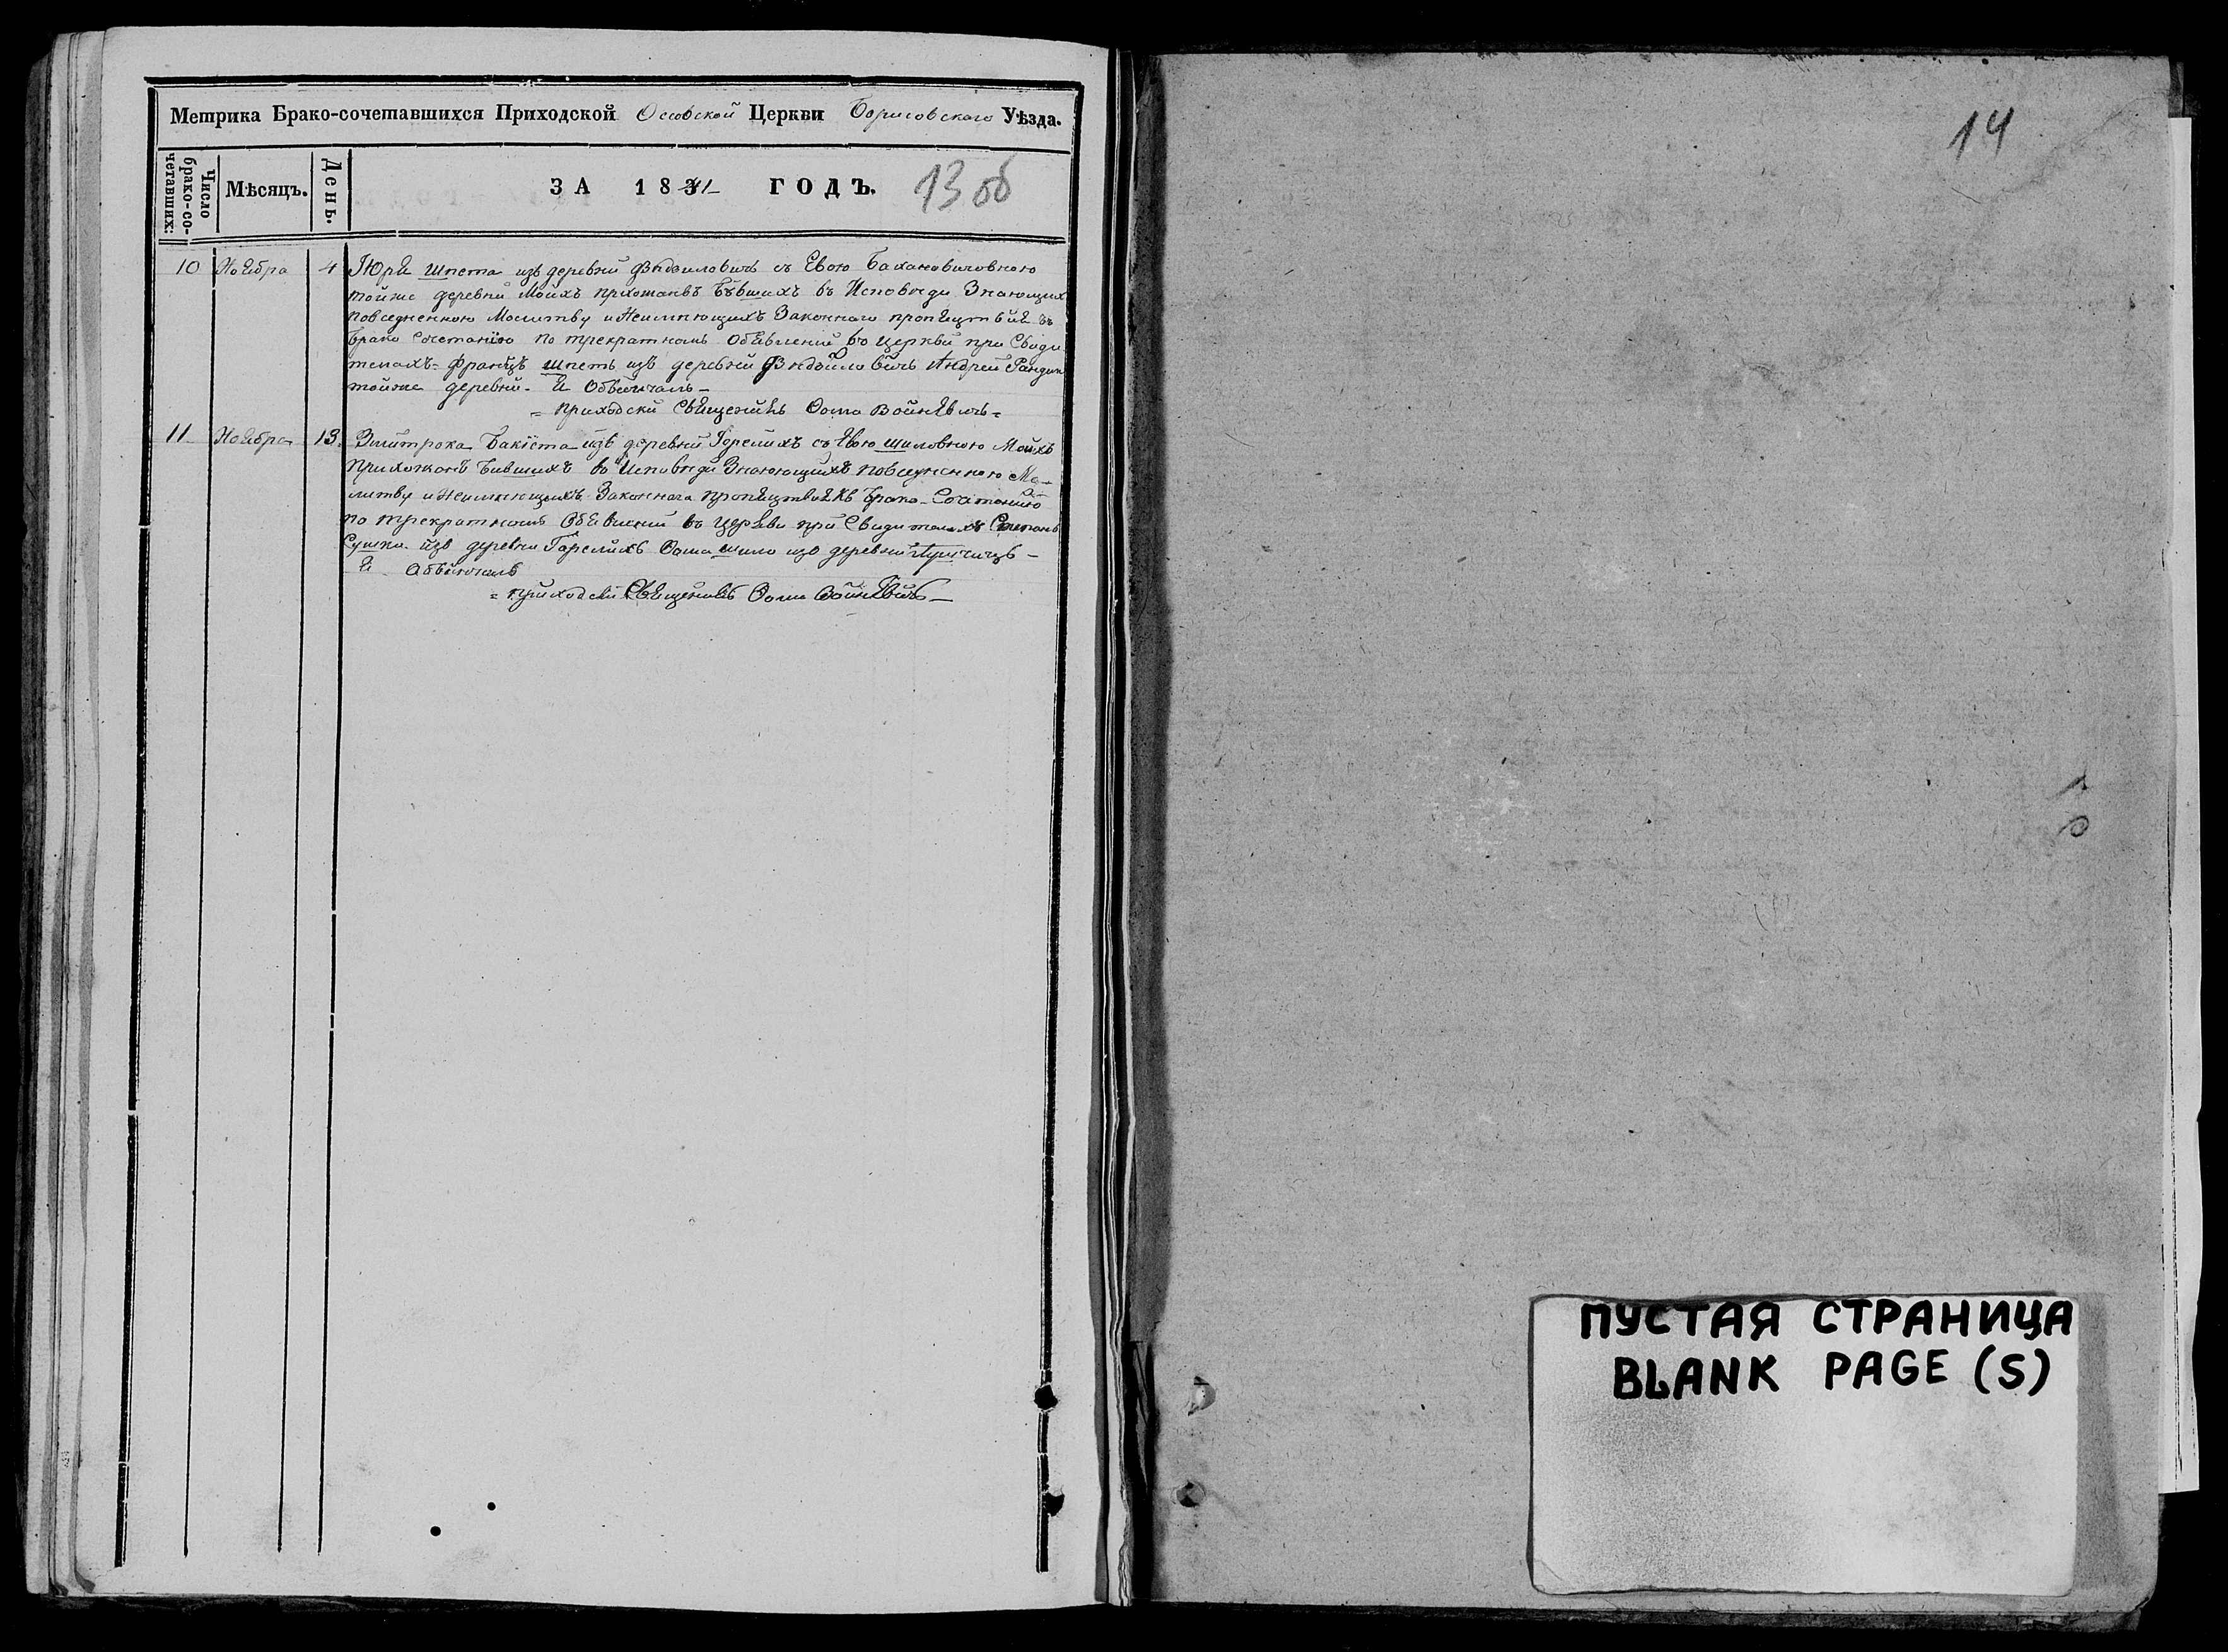 Метрика Брако-сочетавшихся Приходской Осовской Церкви Борисовскаго Уѣзда.
Число брако-со-четавшихъ:
Мѣсяцъ.
День.
ЗА 1841 ГОДЪ.
13 об
10 Ноября 4 Юрия Шпета изъ деревни съ Евою Бахановичовною
тойже деревни Мойхъ прихожанъ бывшихъ въ Исповѣди Знающихъ
повседневною Молитву и Неимеющихъ Законнаго въ
Брако Сочетанію по трекратномъ Объявлений въ церкви при Свиде
теляхъ Францъ Шпетъ изъ деревни Андрей
тойже деревни. И Обвенчалъ
= Приходски Священикъ Ѳома Войневичъ =
11 Ноября 13 Змитрока Бакіста изъ деревни Горелихъ съ Евою Шиловною Мойхъ
Прихожанъ Бившихъ въ Исповѣди Знающихъ повседневною Мо-
литву и Неимеющихъ Законнаго Брако-Сочетанию
по трекратномъ Объявлений въ Церкви при Свидителяхъ Степанъ
Сушко изъ деревни Гарелихъ Ѳома Шило изъ деревни
И Обвенчалъ
= приходски Священикъ Ѳома Войневичъ
14
ПУСТАЯ СТРАНИЦА
BLANK PAGE (S)